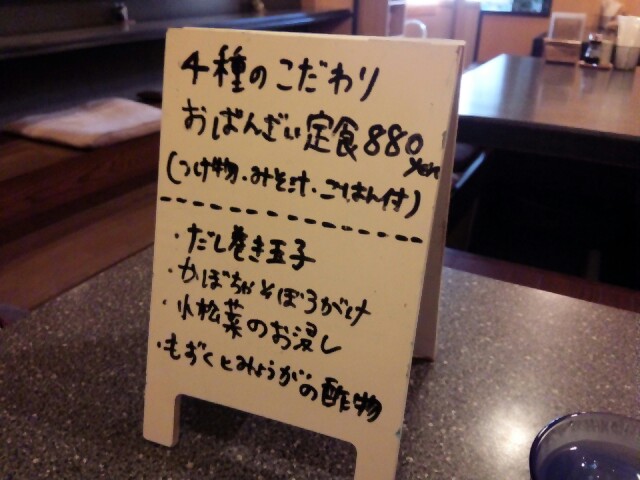 4種のこだわり
おばんざい定食880yen
(つけ物・みそ汁・ごはん付)
・だし巻き玉子
・かぼちゃそぼろがけ
・小松菜のお浸し
・もずくとみょうがの酢物